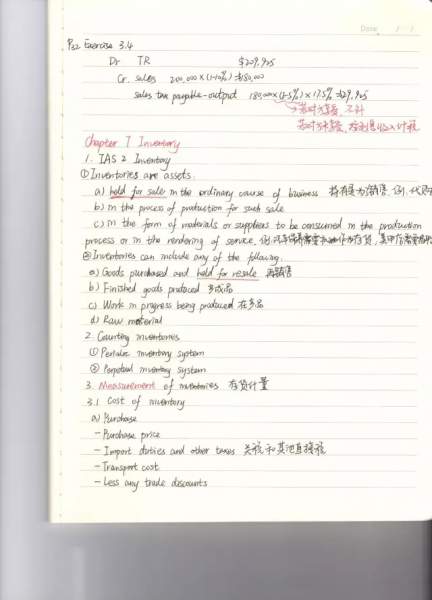 Date
P32 Exercise 3.4
Dr TR $209,925
Cr. sales 200,000×(1-10%)=180,000
sales tax payable-output 180,000×(1-5%)×17.5%=29,925
Chapter 7 Inventory
1. IAS 2 Inventory
① Inventories are assets.
a) held for sale in the ordinary course of business 持有待为销售
b) in the process of production for such sale
c) in the form of materials or suppliers to be consumed in the production
process or in the rendering of service,
② Inventories can include any of the following.
a) Goods purchased and held for resale 再销售
b) Finished goods produced 产成品
c) Work in progress being produced 在产品
d) Raw material
2. Counting inventories
① Periodic inventory system
② Perpetual inventory system
3. Measurement of inventories 存货计量
3.1 Cost of inventory
a) Purchase
- Purchase price
- Import duties and other taxes 关税和其他直接税
- Transport cost
- Less any trade discounts